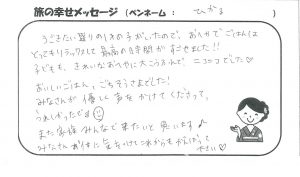 旅の幸せメッセージ（ペンネーム：ひかる）
うごきたい盛りの1才の子がいたので、おへやでごはんは
とってもリラックスして最高の時間がすごせました!!
子どもも、きれいなおへやに大こうふんで、ニコニコでした♡
おいしいごはん、ごちそうさまでした!
みなさんが優しく声をかけてくださって、
うれしかったです
また家族みんなで来たいと思います♪
みなさんお体に気をつけてこれからも頑張って
下さい♡